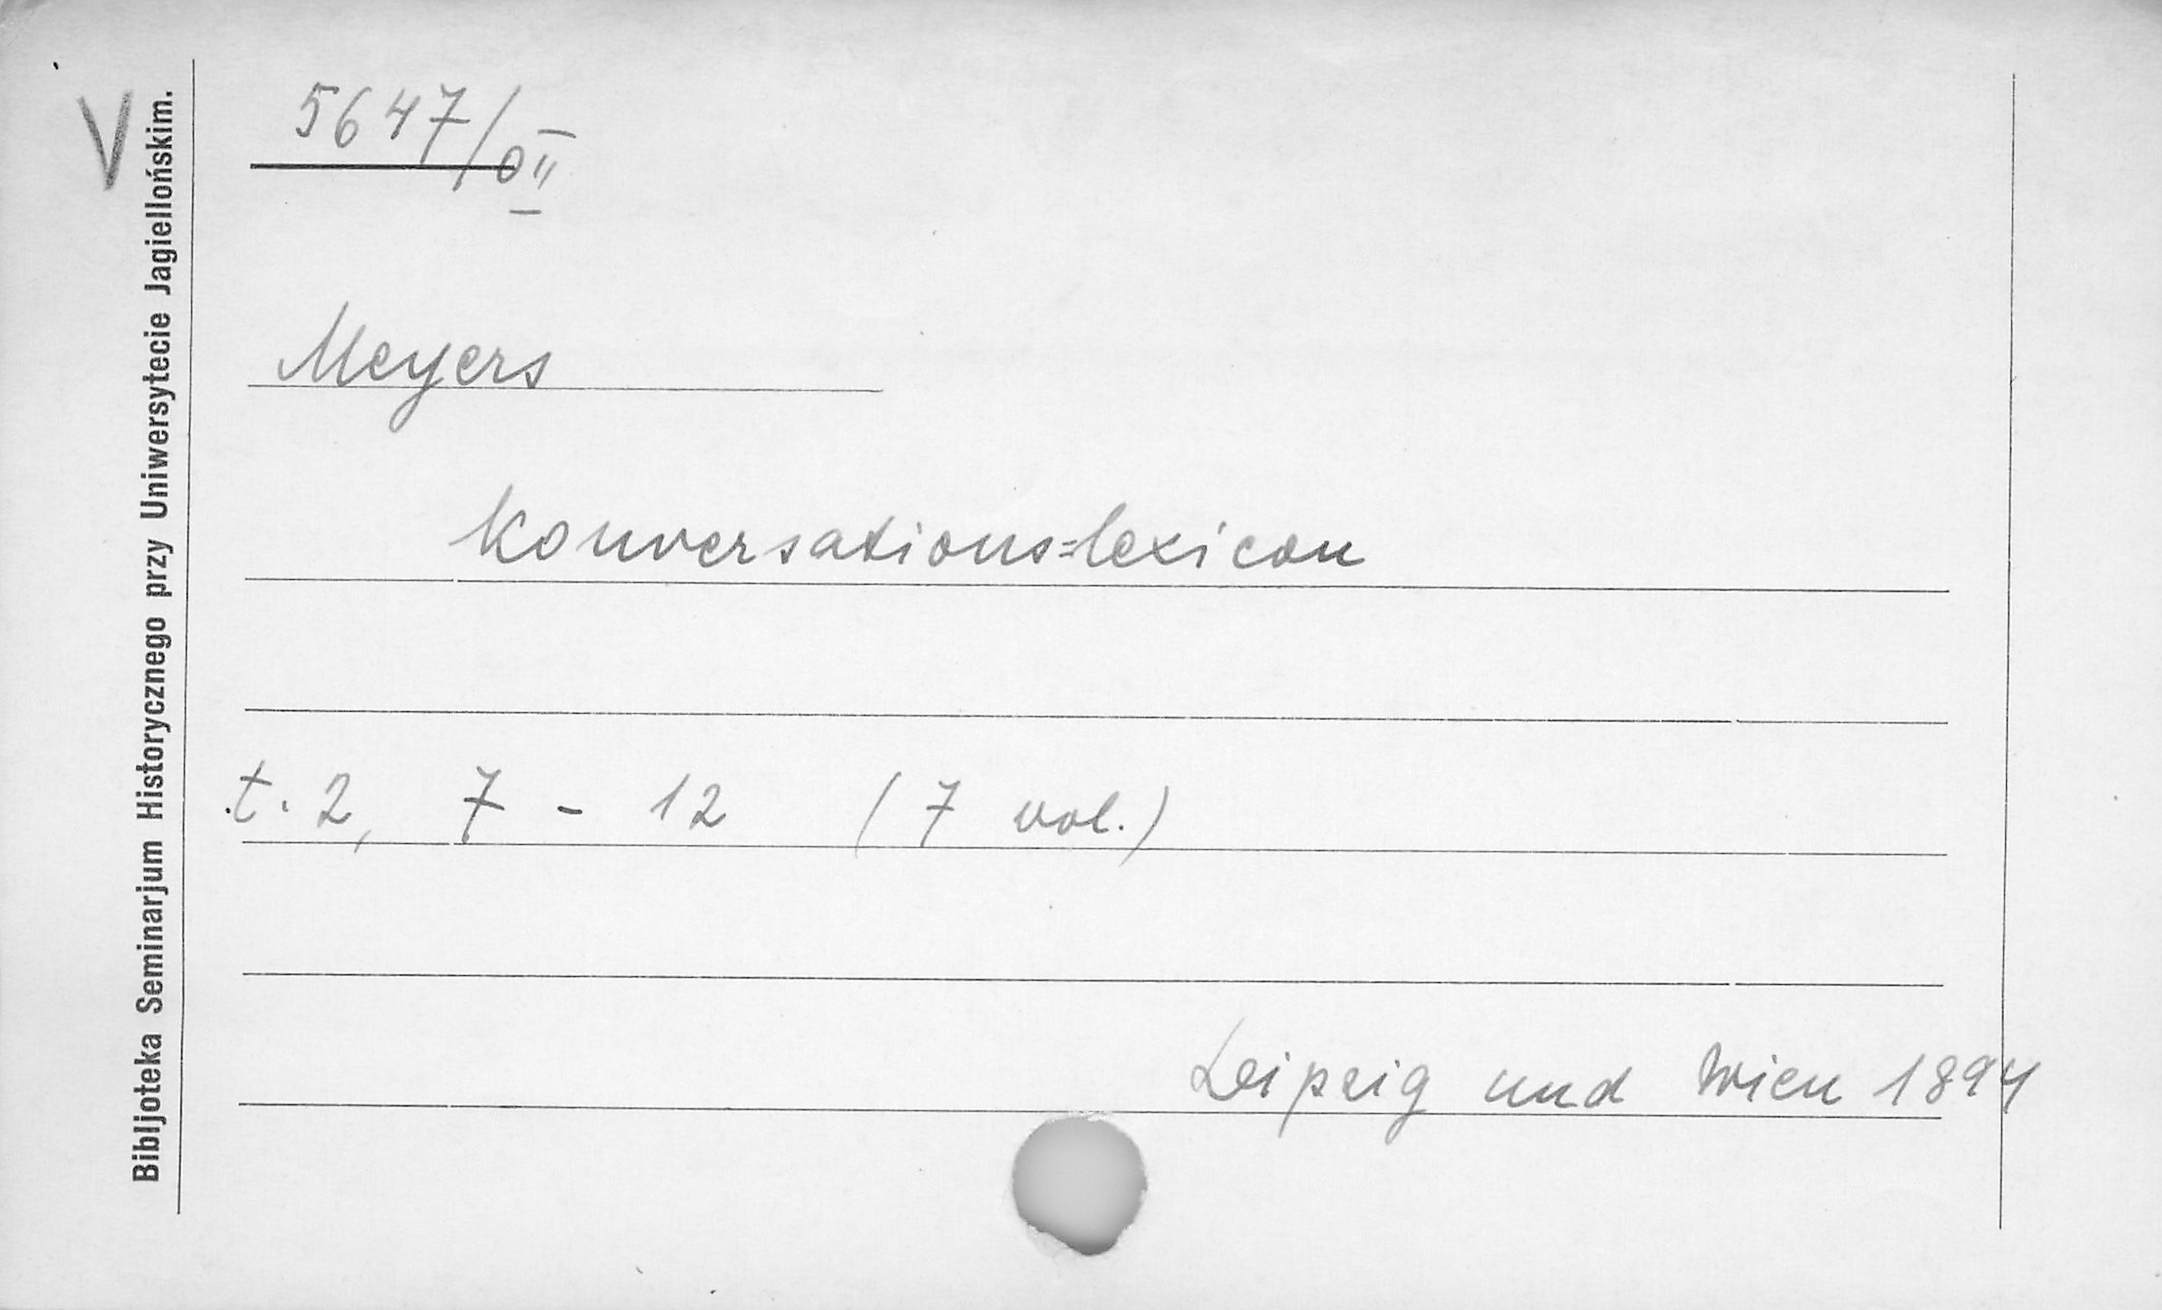 V
Bibljoteka Seminarjum Historycznego przy Uniwersytecie Jagiellońskim.
5647/0II
Meyers
Konversations=lexicon
t. 2, 7 - 12 (7 vol.)
Leipzig und Wien 1894